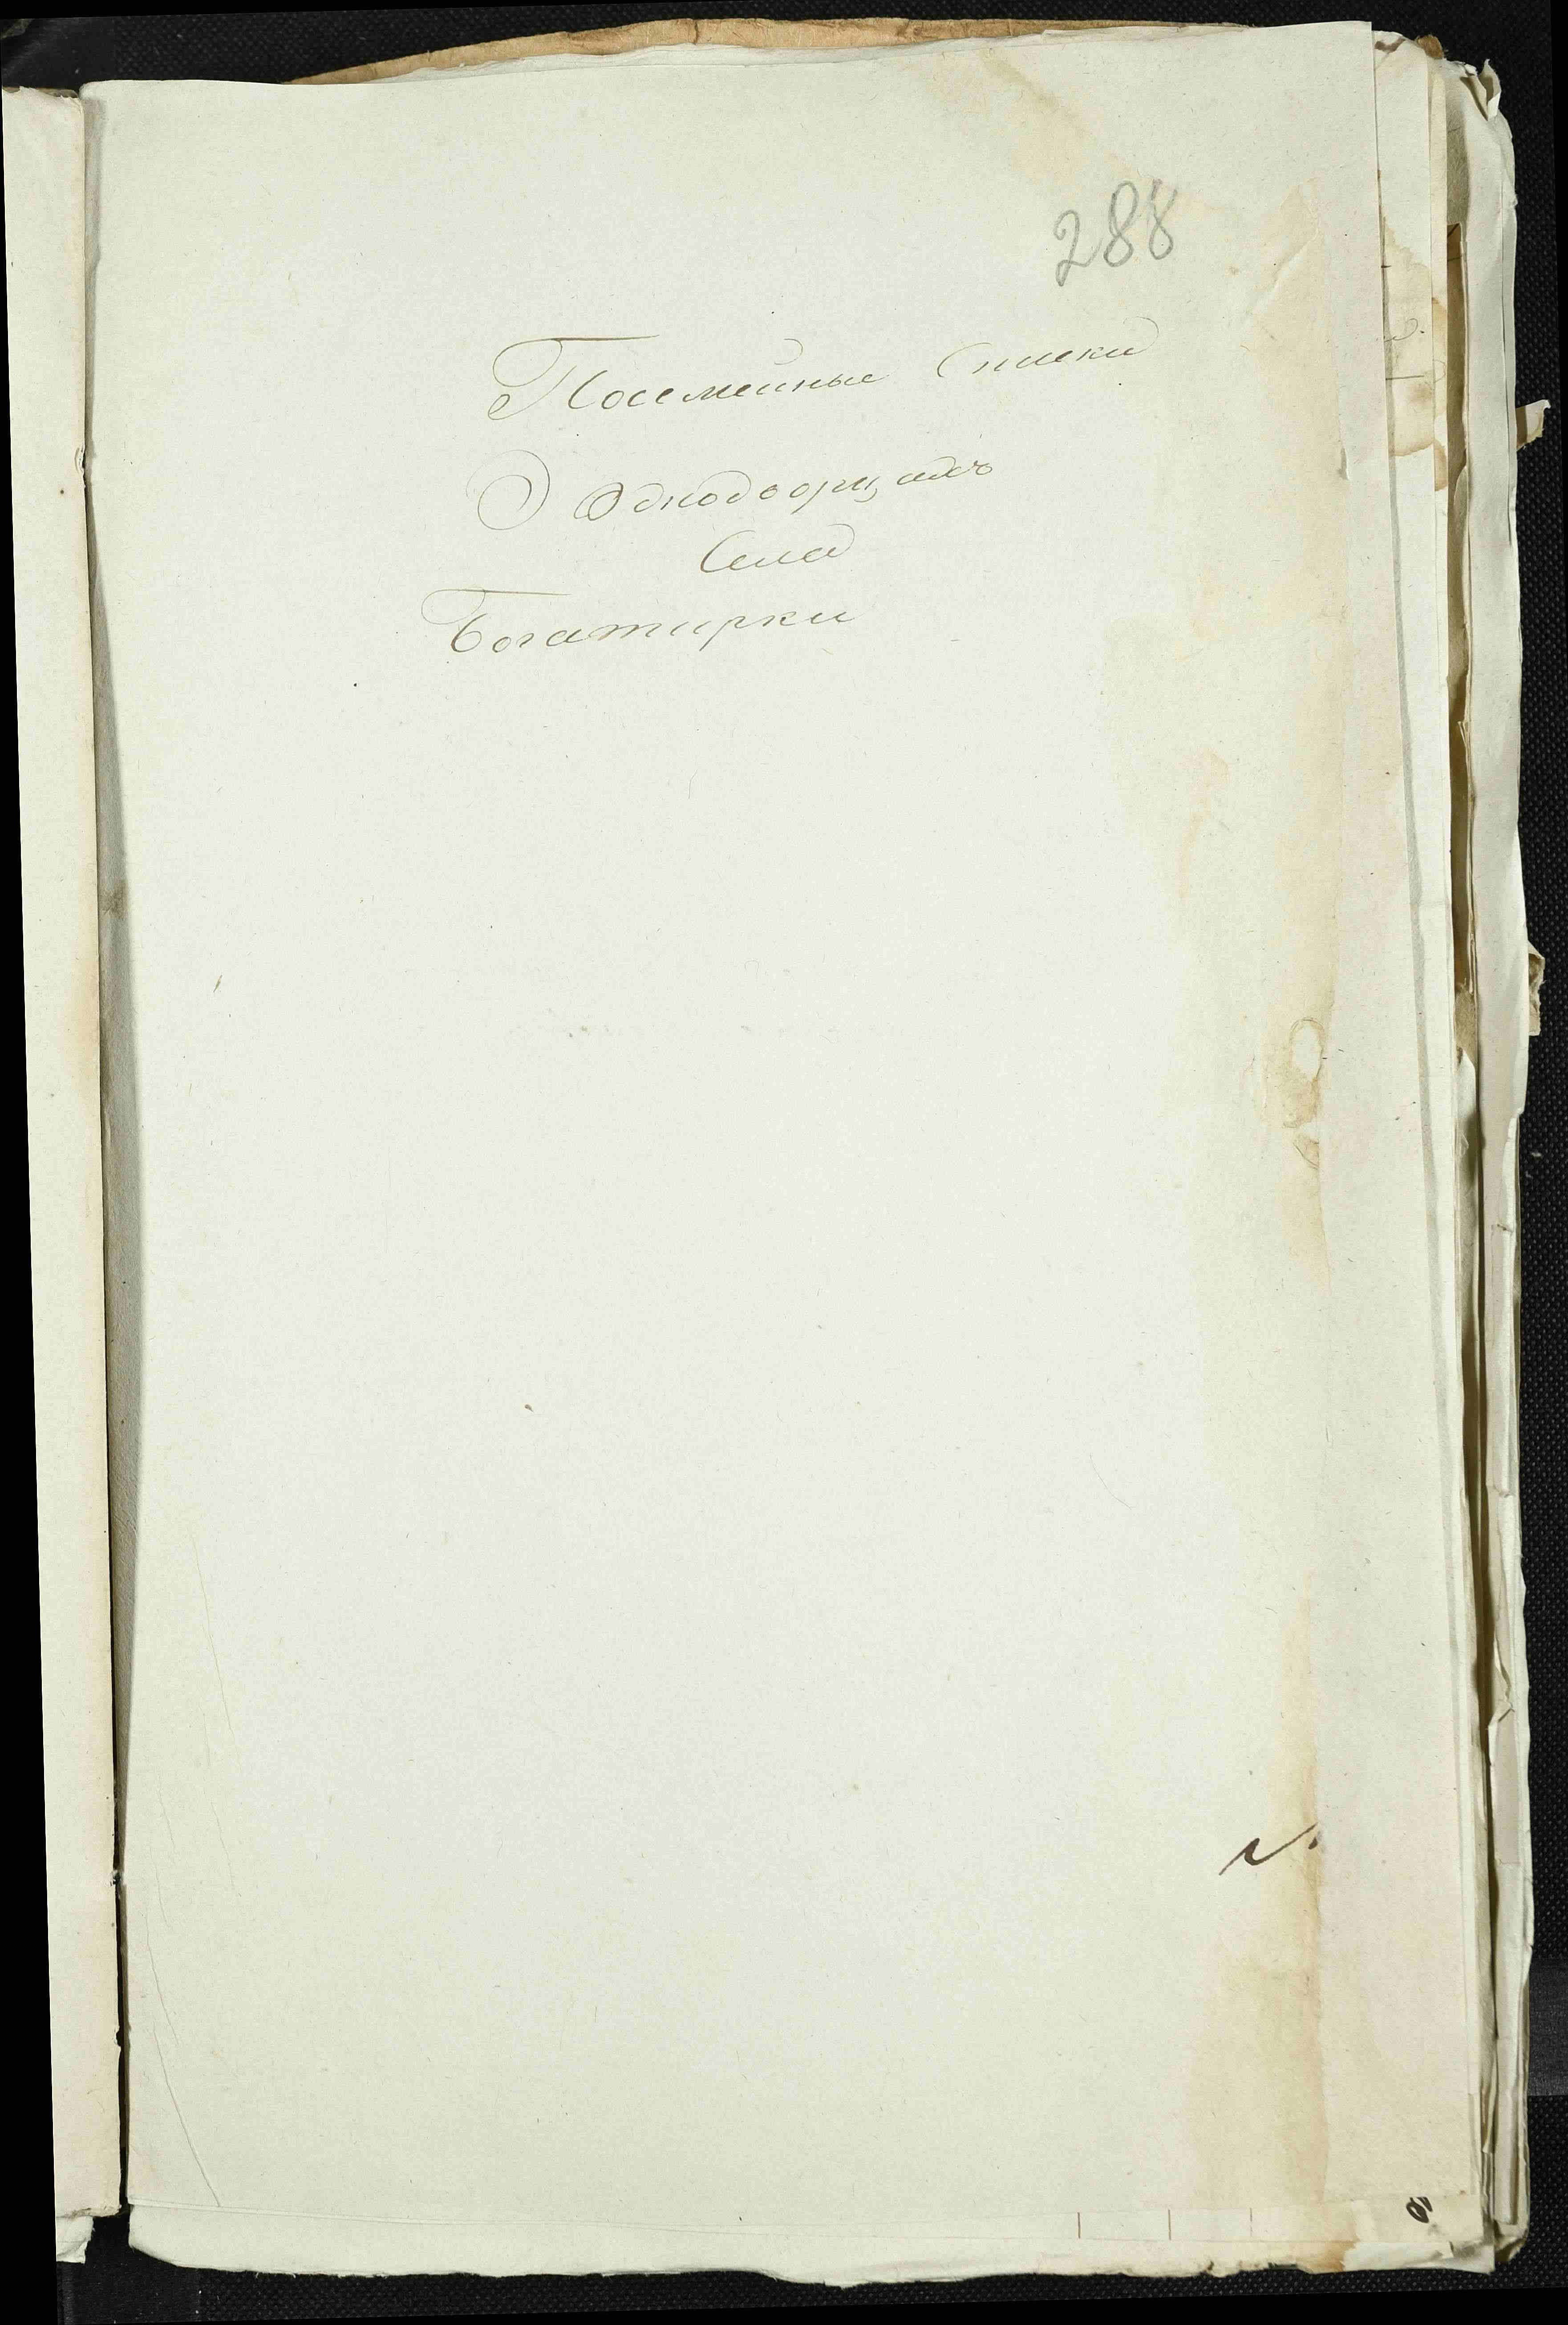 288
Посемейные Списки
О Однодворцахъ
Села
Богатирки